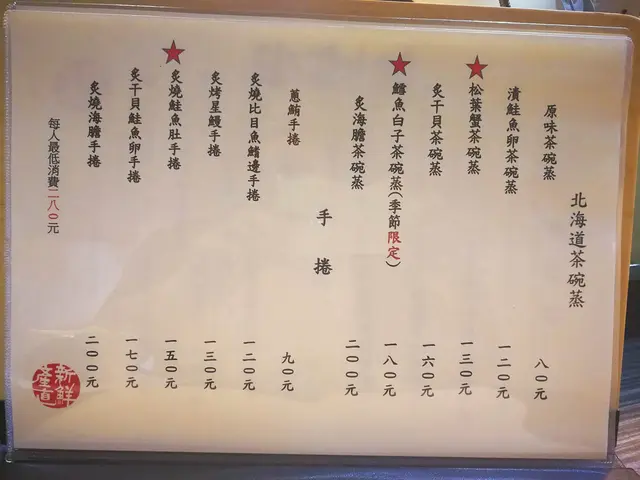 北海道茶碗蒸
原味茶碗蒸 八0元
漬鮭魚卵茶碗蒸 一二0元
★松葉蟹茶碗蒸 一三0元
炙干貝茶碗蒸 一六0元
★鱈魚白子茶碗蒸(季節限定) 一八0元
炙海膽茶碗蒸 二00元
手捲
蔥鮪手捲 九0元
炙燒比目魚鰭邊手捲 一二0元
炙烤星鰻手捲 一三0元
★炙燒鮭魚肚手捲 一五0元
炙干貝鮭魚卵手捲 一七0元
炙燒海膽手捲 二00元
每人最低消費二八0元
新鮮
產直